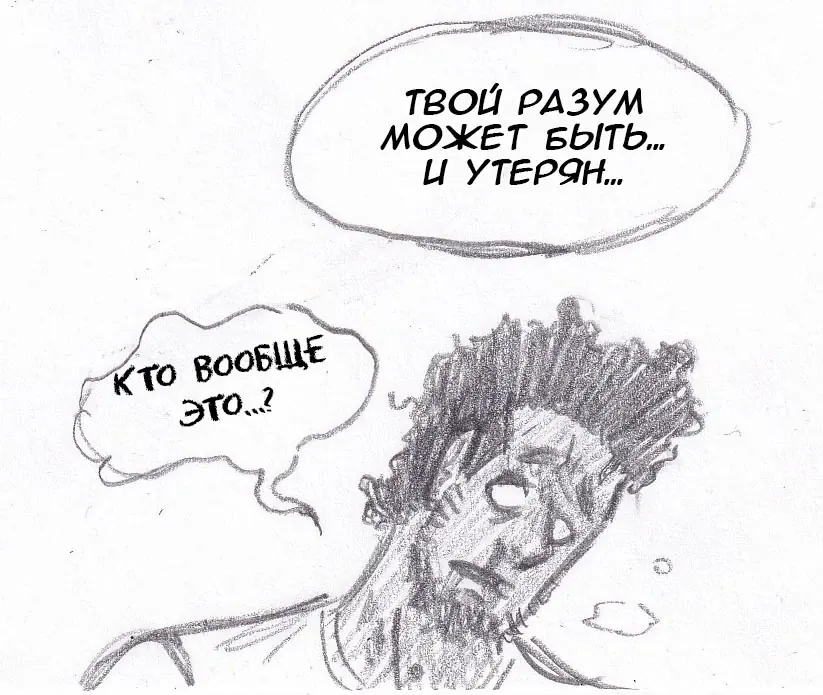 ТВОЙ РАЗУМ
МОЖЕТ БЫТЬ...
И УТЕРЯН...
КТО ВООБЩЕ
ЭТО...?